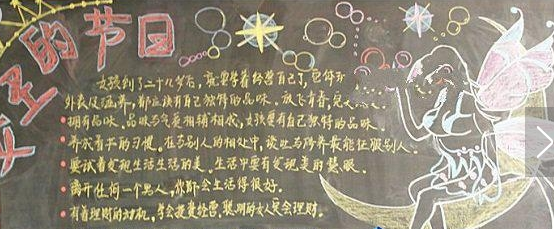 女生的节日
女孩到了二十几岁后，就要学着经营自己了，
外表及涵养，都应该有自己独特的品味。放飞青春，
拥有品味。品味与气质相辅相成，女孩要有自己独特的品味。
养成看书的习惯。在与别人的相处中，谈吐与修养最能征服别人。
要试着发现生活生活的美。生活中要有发现美的慧眼。
离开任何一个男人，你都会生活得很好。
有着理财的动机，学会投资经营。聪明的女人更会理财。